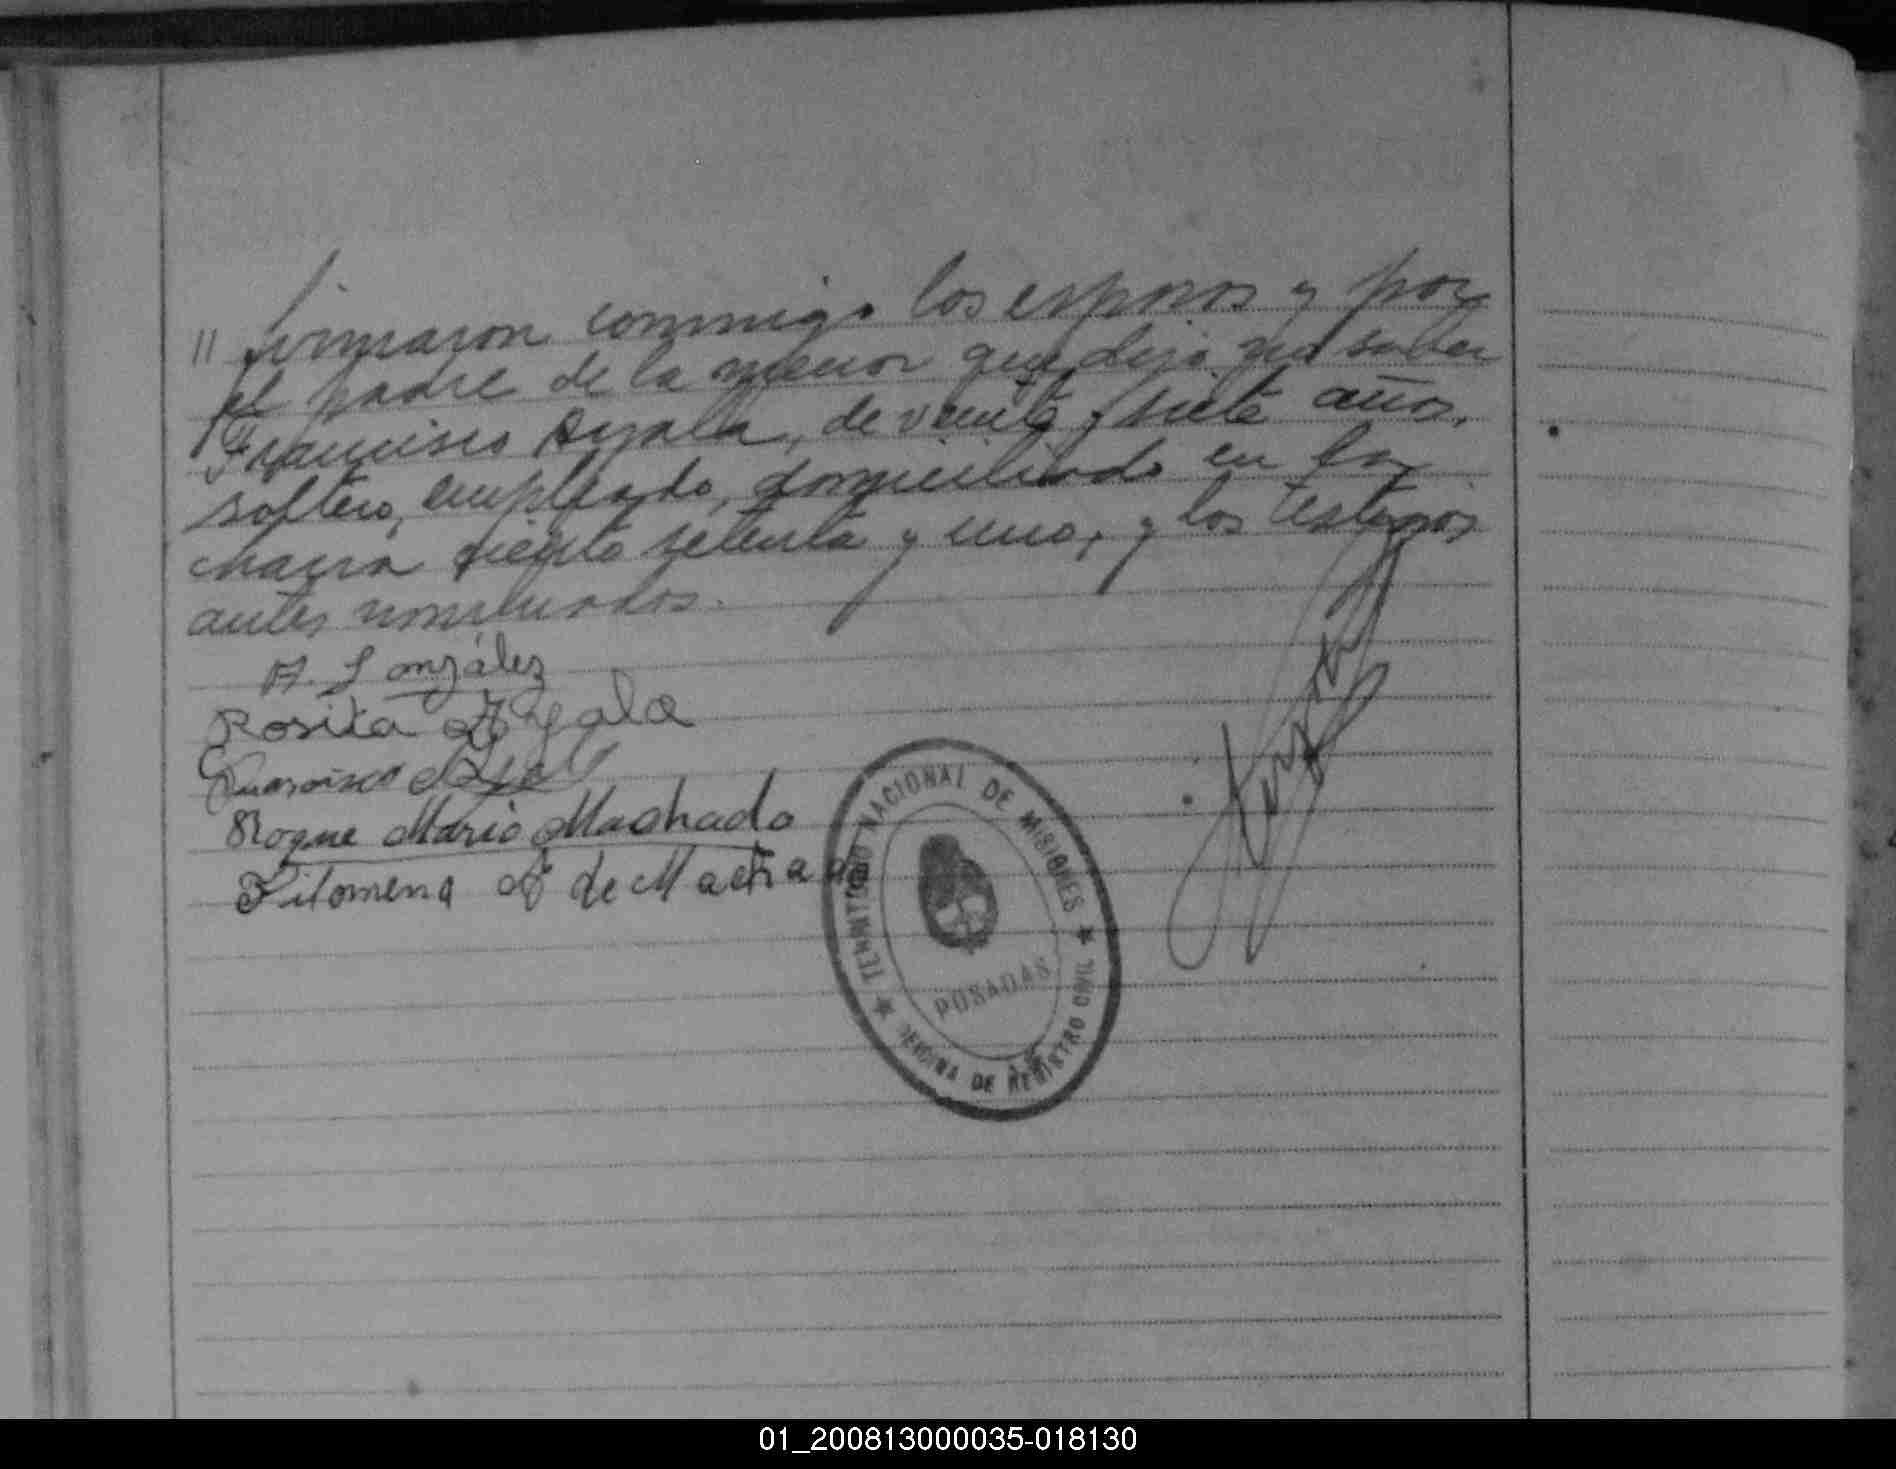 " firmaron conmigo los esposos y por
el padre de la menor que dijo no saber
Francisco Ayala, de veinte y siete años,
soltero, empleado, domiciliado en la
chacra ciento setenta y uno, y los testigos
antes nombrados.
A. González
Rosita Ayala
Francisco Ayala
Roque Mario Machado
Filomena A de Machado
TERRITORIO NACIONAL DE MISIONES
POSADAS
OFICINA DE REGISTRO CIVIL
01_200813000035-018130